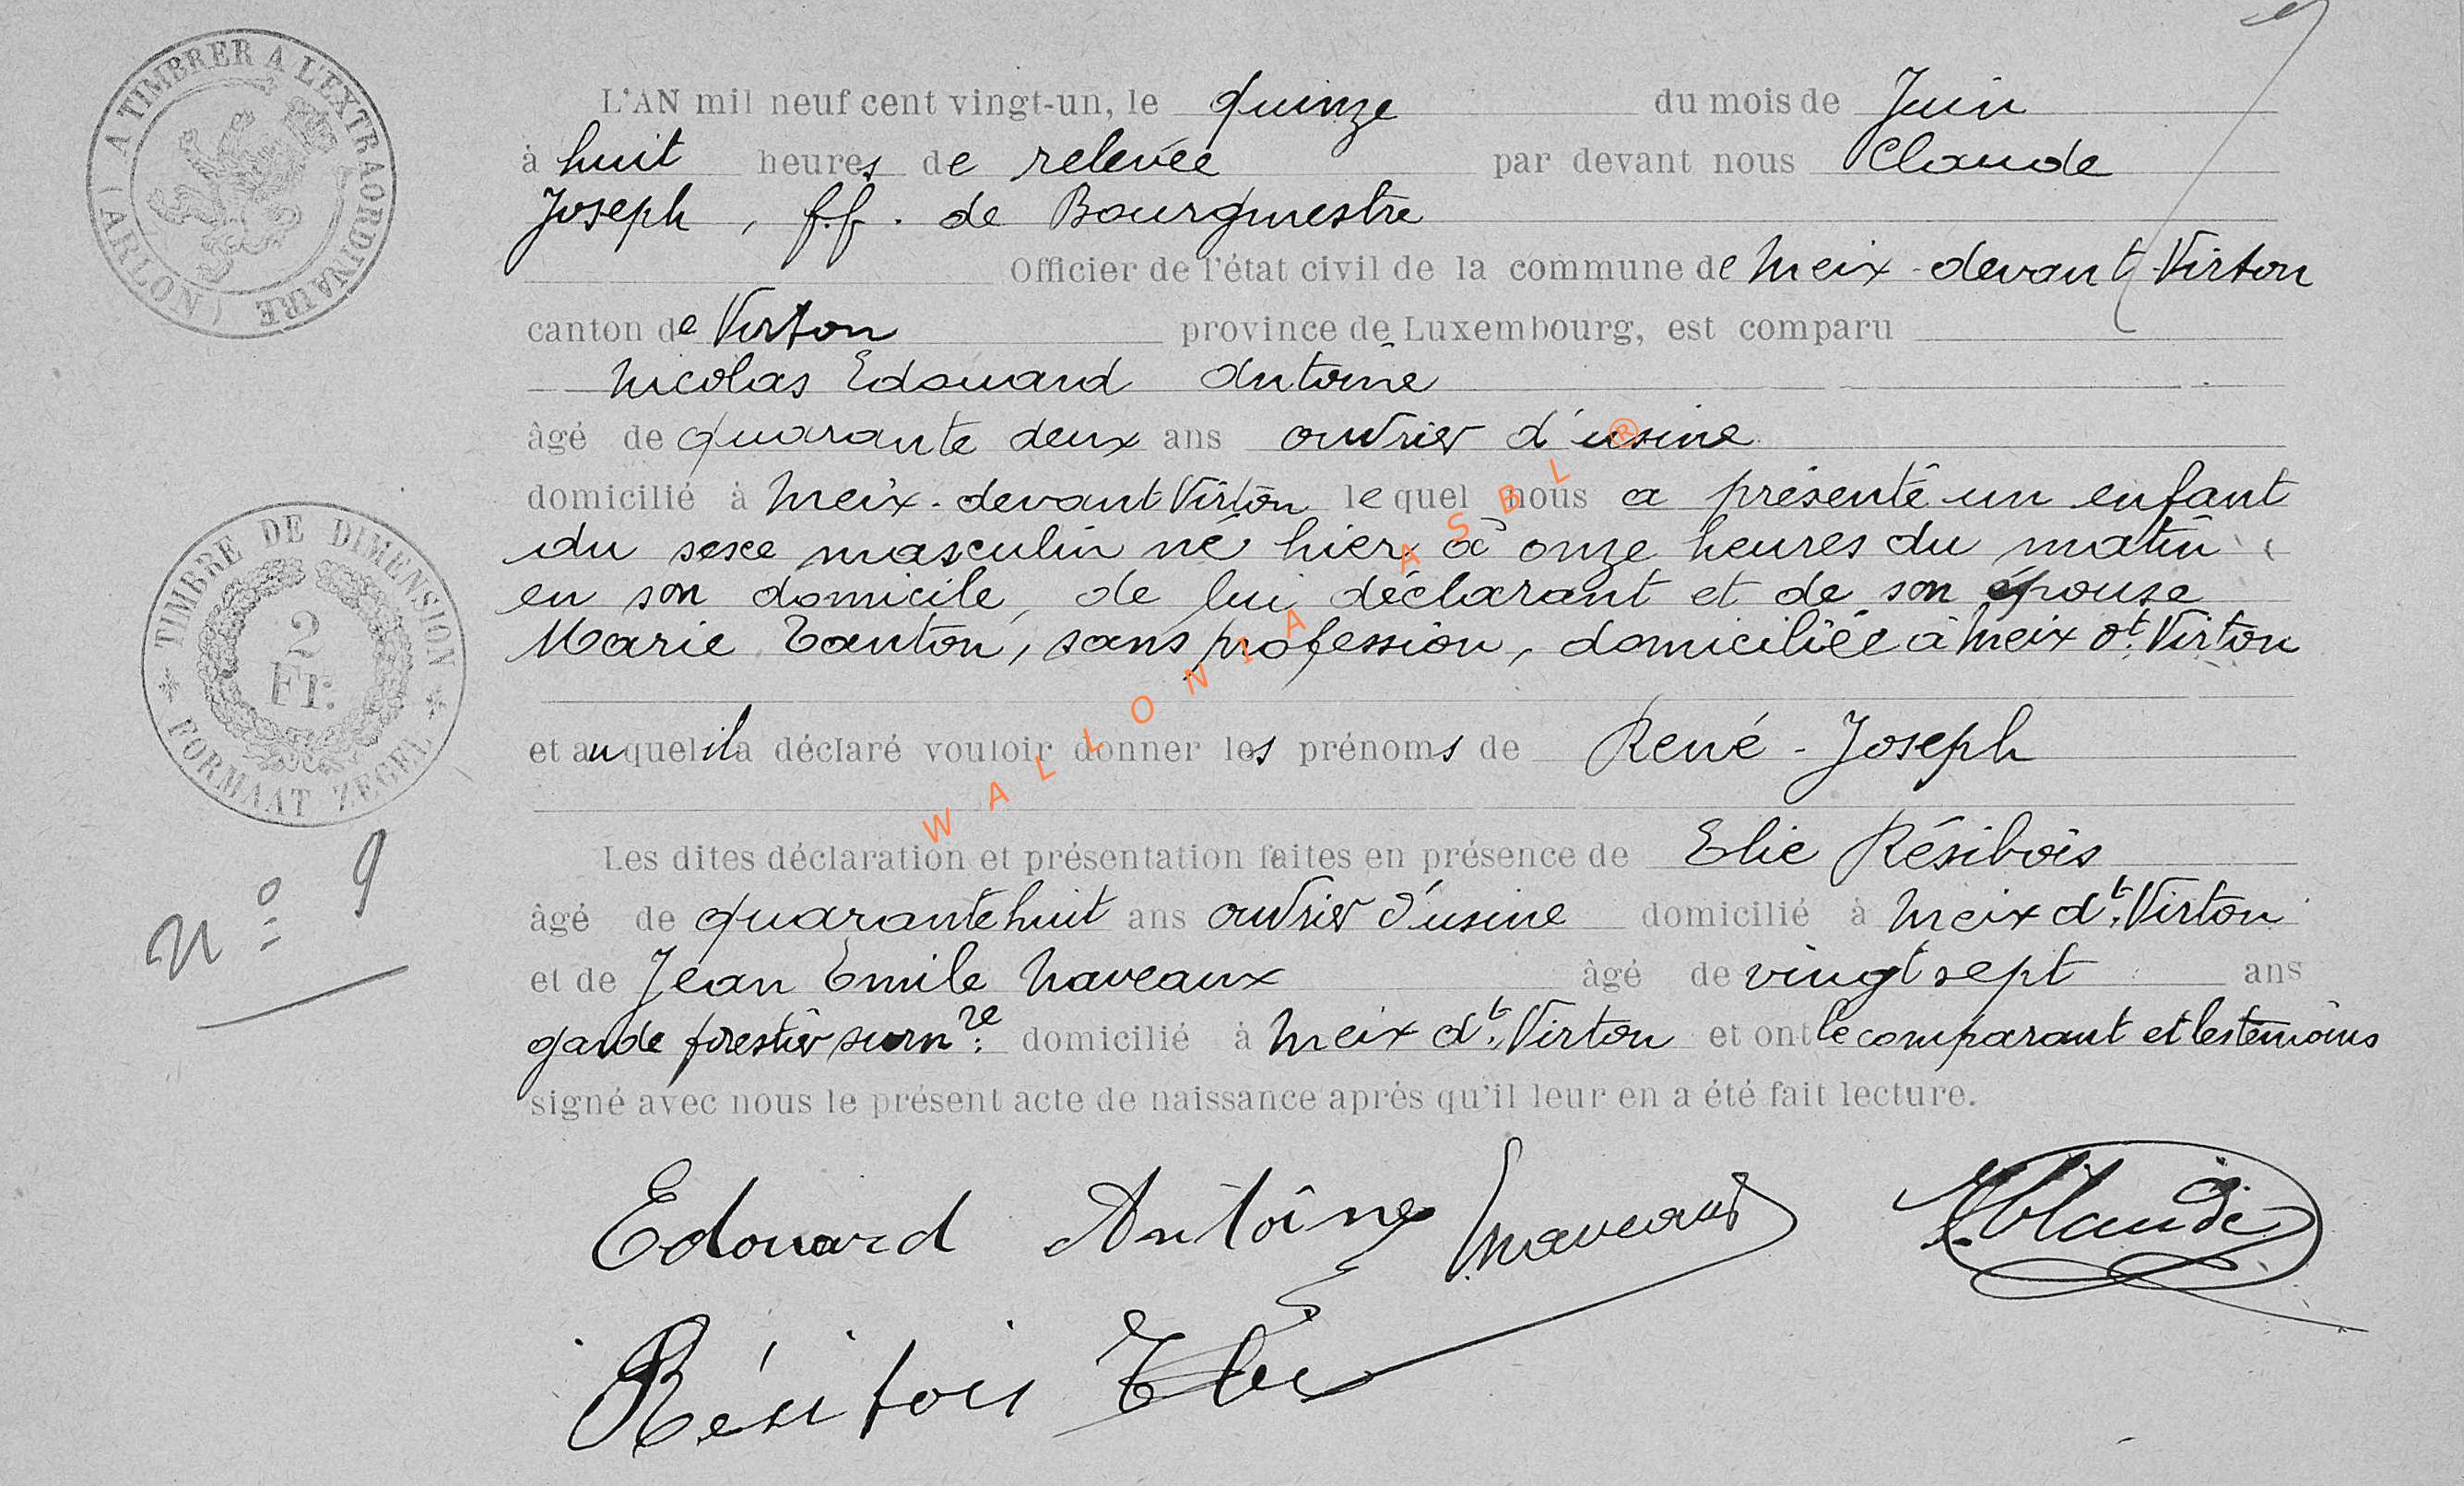 A TIMBRER A L'EXTRAORDINAIRE
(ARLON)
L'AN mil neuf cent vingt-un, le quinze du mois de Juin
à huit heures de relevée par devant nous Claude
Joseph, ff. de Bourgmestre
Officier de l'état civil de la commune de Meix-devant-Virton
canton de Virton province de Luxembourg, est comparu
Nicolas Edouard Antoine
âgé de quarante deux ans ouvrier d'usine
domicilié à Meix-devant Virton lequel nous a présenté un enfant
du sexe masculin né hier à onze heures du matin,
en son domicile, de lui déclarant et de son épouse
Marie Tanton, sans profession, domiciliée à Meix dt Virton
TIMBRE DE DIMENSION
2
Fr.
FORMAAT ZEGEL
et auquel il a déclaré vouloir donner les prénoms de René-Joseph
Les dites déclaration et présentation faites en présence de Elie Résibois
N° 9
âgé de quarante huit ans ouvrier d'usine domicilié à Meix dt Virton
et de Jean Emile Naveaux âgé de vingt sept ans
garde forestier surn re domicilié à Meix dt Virton et ont le comparant et les témoins
signé avec nous le présent acte de naissance après qu'il leur en a été fait lecture.
Edouard Antoine Naveaux J. Claude
Résibois Elie
WALLONIA ASBL ®